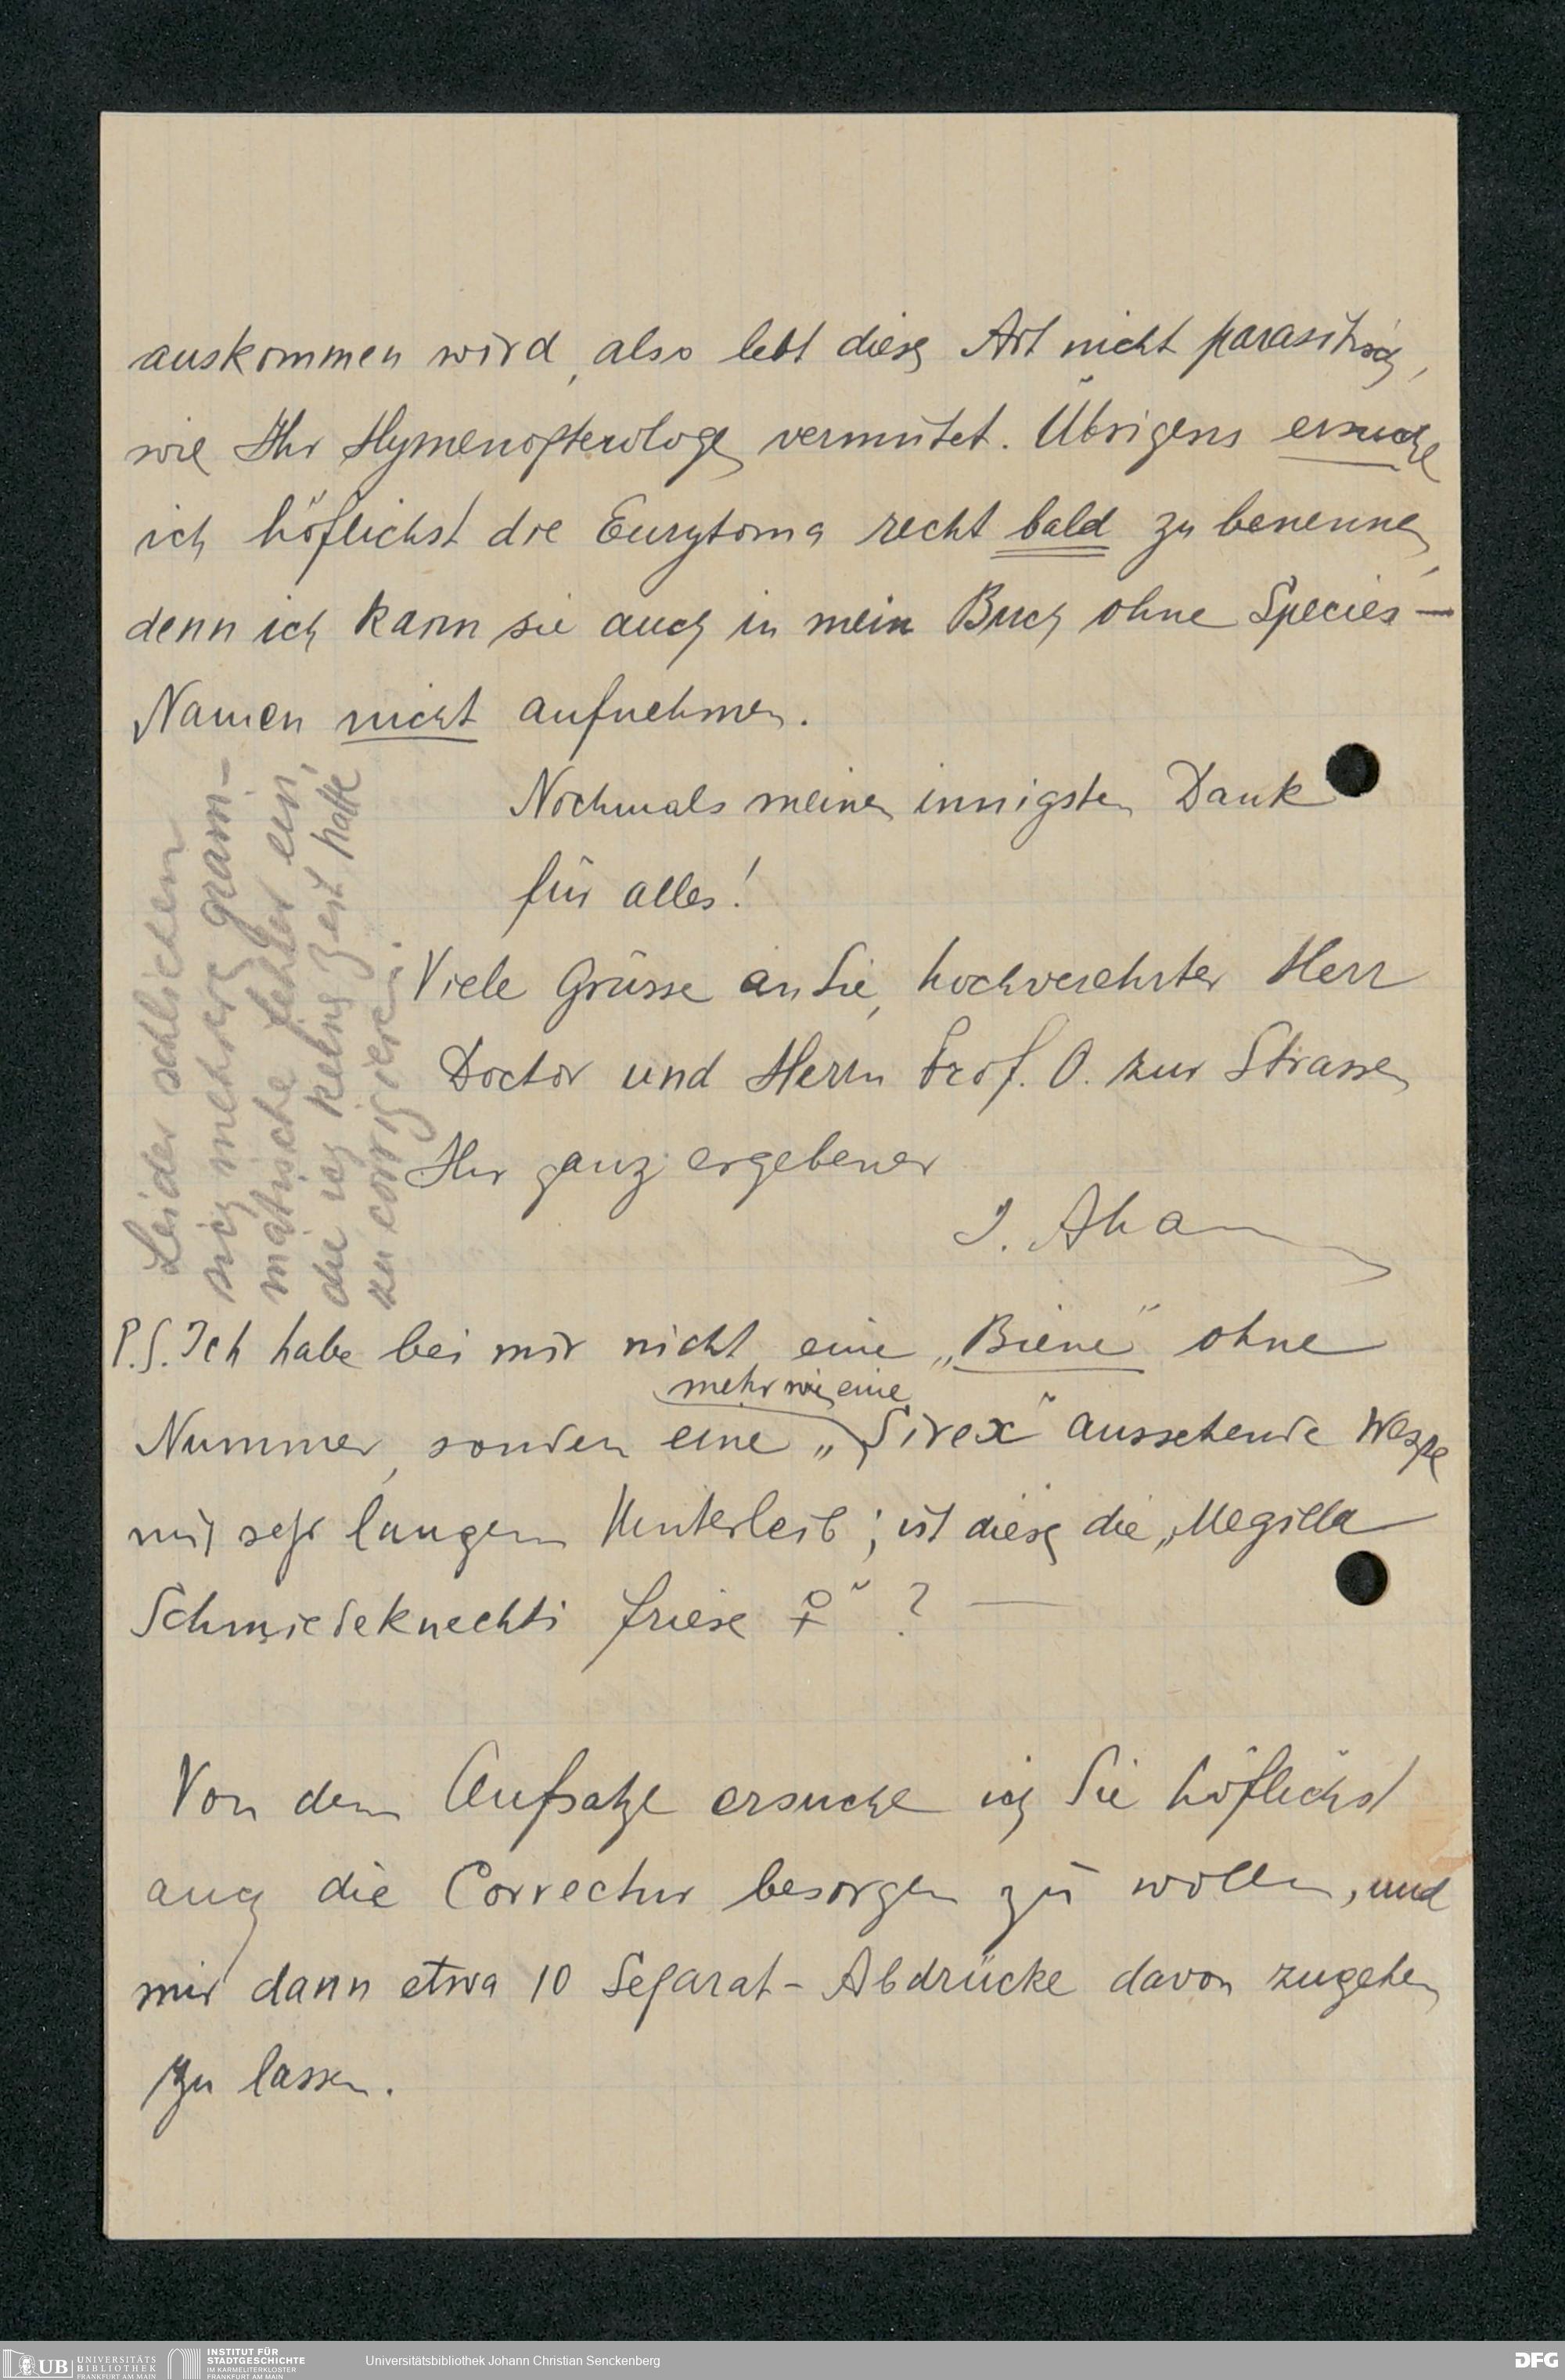 auskommen wird, also lebt diese Art nicht parasitisch,
wie Ihr Hymenopterologe vermutet. Übrigens ersuche
ich höflichst die Eurytoma recht bald zu benennen,
denn ich kann sie auch in mein Buch ohne Species-
Namen nicht aufnehmen.
Nochmals meinen innigsten Dank
für alles!
Viele Grüsse an Sie, hochverehrter Herr
Doctor und Herrn Prof. O. zur Strassen
Ihr ganz ergebener
J. Aharoni
Leider schlichen
sich mehrere gram-
matische Fehler ein,
die ich keine Zeit hatte
zu corrigieren.
P.S. Ich habe bei mir nicht eine „Biene" ohne
mehr wie eine
Nummer, sondern eine „Sirex" aussehende Wespe
mit sehr langem Hinterleib; ist diese die „Megilla
Schmiedeknechti Friese ♀" ? —
Von dem Aufsatze ersuche ich Sie höflichst
auch die Correctur besorgen zu wollen, und
mir dann etwa 10 Separat-Abdrücke davon zugehen
zu lassen.
UB UNIVERSITÄTS
BIBLIOTHEK
FRANKFURT AM MAIN
INSTITUT FÜR
STADTGESCHICHTE
IM KARMELITERKLOSTER
FRANKFURT AM MAIN
Universitätsbibliothek Johann Christian Senckenberg
DFG